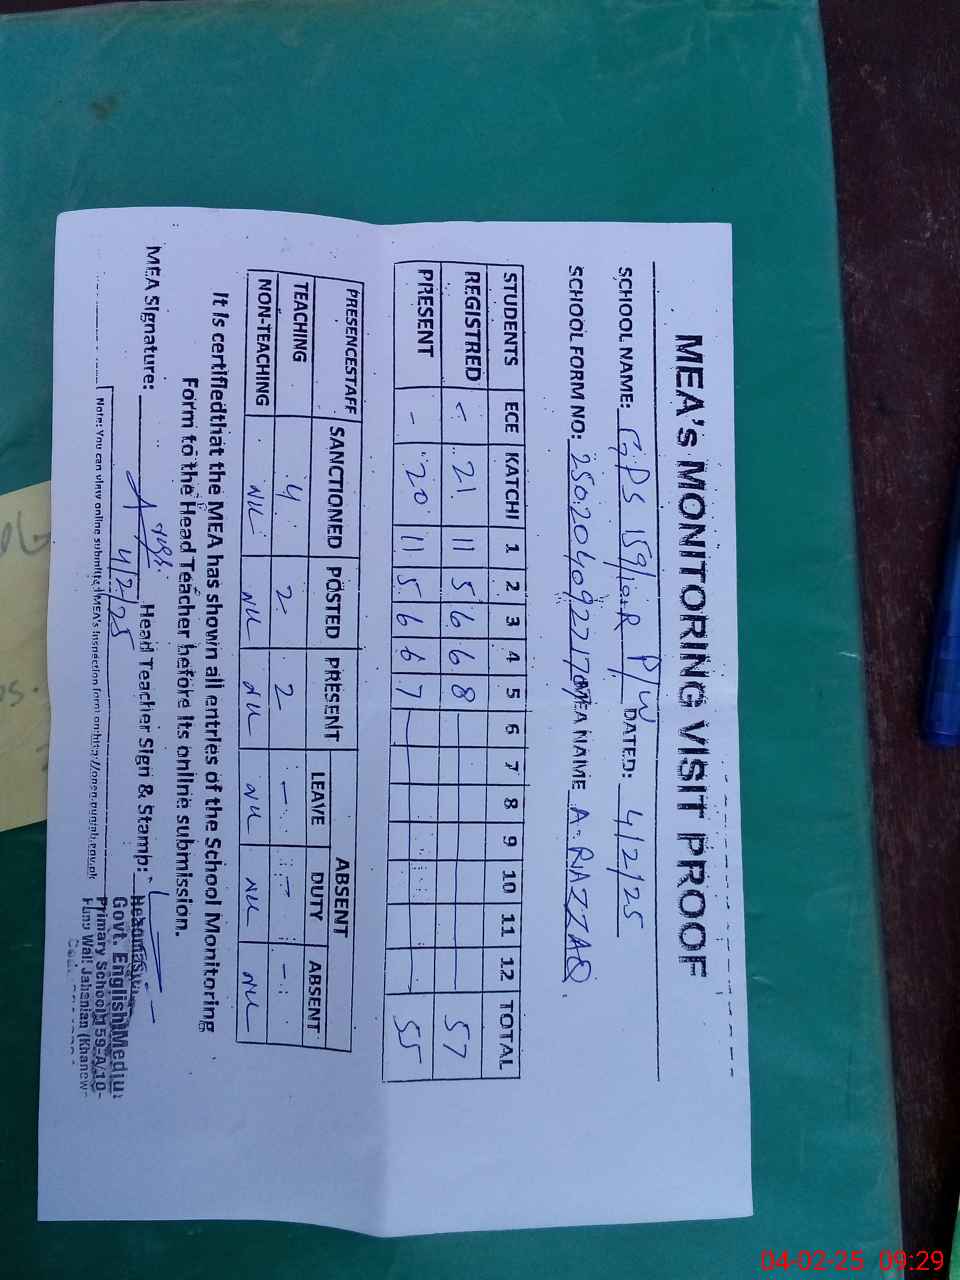 MEA's MONITORING VISIT PROOF
SCHOOL NAME: GPS 159/10-R P/W DATED: 4/2/25
SCHOOL FORM NO: MEA NAME A-RAZZAQ.
STUDENTS ECE KATCHI 1 2 3 4 5 6 7 8 9 10 11 12 TOTAL
REGISTRED - 21 11 5 6 6 8 57
PRESENT - 20 11 5 6 6 7 55
PRESENCESTAFF SANCTIONED POSTED PRESENT ABSENT
LEAVE DUTY ABSENT
TEACHING 4 2 2 - - -
NON-TEACHING NIL NIL NIL NIL NIL NIL
It is certifiedthat the MEA has shown all entries of the School Monitoring
Form to the Head Teacher before its online submission.
MEA Signature: Head Teacher Sign & Stamp:
4/2/25
Headmaster
Govt. English Mediu
Primary School 159-A/10-
Wali Jahanian (Khanew
Note: You can view online submitted MEA's inspection form on
04-02-25 09:29